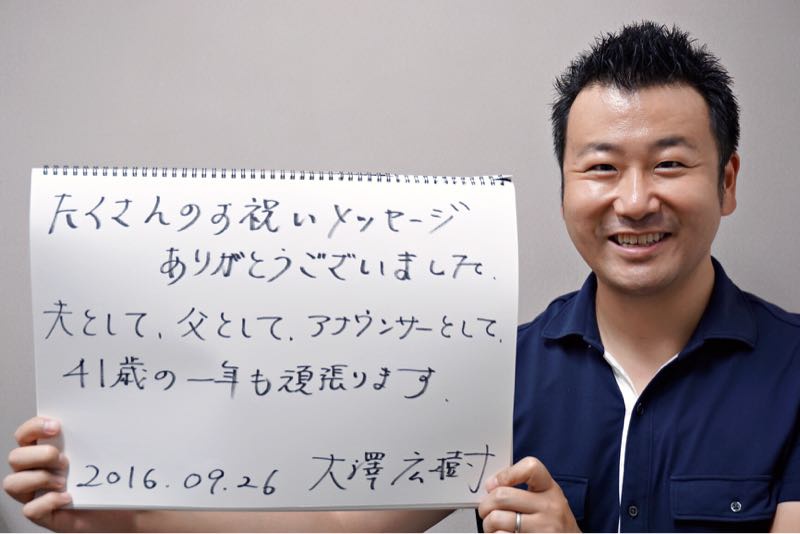 たくさんのお祝いメッセージ
ありがとうございました.
夫として、父として、アナウンサーとして、
41歳の一年も頑張ります.
2016.09.26 大澤広樹